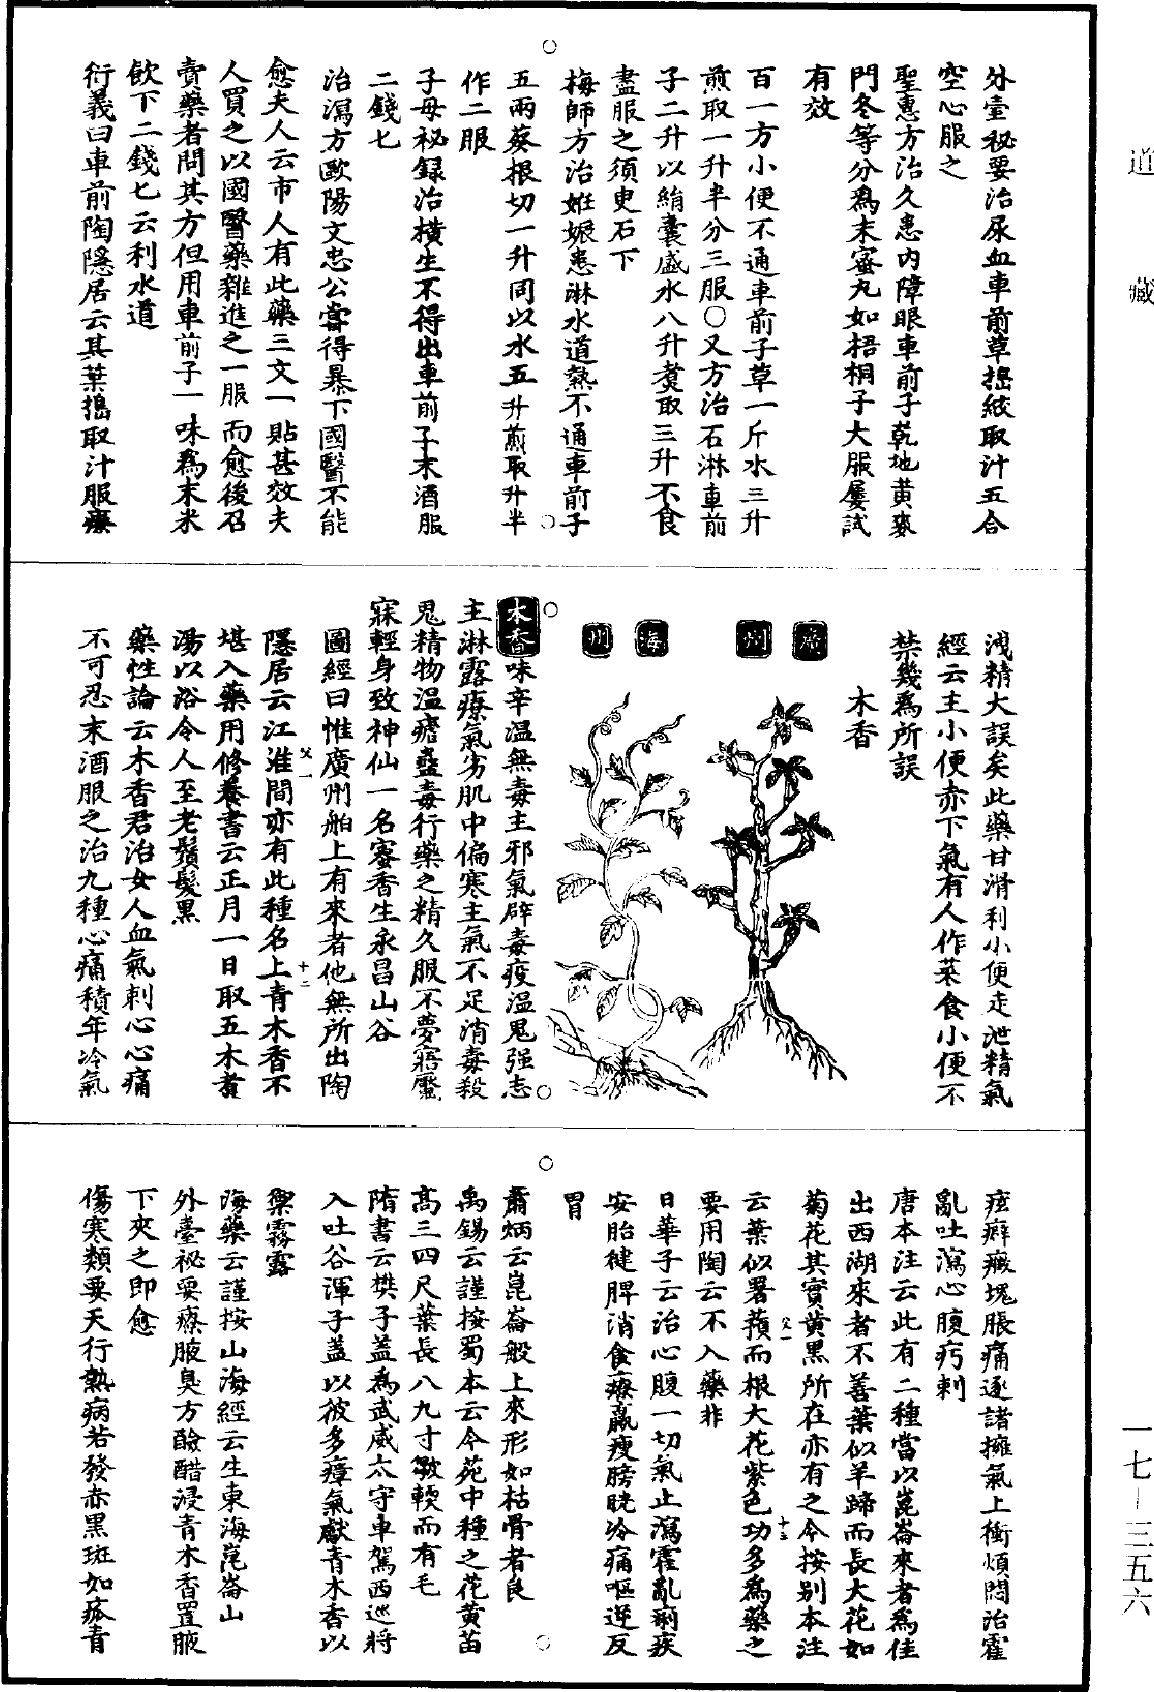 道藏
外臺秘要治尿血車前草搗絞取汁五合
空心服之
聖惠方治久患内障眼車前子乾地黄麥
門冬等分爲末蜜丸如梧桐子大服屢試
有效
百一方小便不通車前子草一斤水三升
煎取一升半分三服○又方治石淋車前
子二升以絹囊盛水八升煑取三升不食
盡服之須臾石下
梅師方治姙娠患淋水道熱不通車前子
五兩葵根切一升同以水五升煎取升半
作二服
子母祕録治横生不得出車前子末酒服
二錢匕
治瀉方歐陽文忠公嘗得暴下國醫不能
愈夫人云市人有此藥三文一貼甚效夫
人買之以國醫藥雜進之一服而愈後召
賣藥者問其方但用車前子一味爲末米
飲下二錢匕云利水道
衍義曰車前陶隱居云其葉搗取汁服療
洩精大誤矣此藥甘滑利小便走泄精氣
經云主小便赤下氣有人作菜食小便不
禁幾爲所誤
木香
廣州
海州
木香味辛溫無毒主邪氣辟毒疫溫鬼强志
主淋露療氣劣肌中偏寒主氣不足消毒殺
鬼精物溫瘧蠱毒行藥之精久服不夢寤魘
寐輕身致神仙一名蜜香生永昌山谷
圖經曰惟廣州舶上有來者他無所出陶
隱居云江淮間亦有此種名上青木香不
堪入藥用修養書云正月一日取五木煮
湯以浴令人至老鬚髮黑
藥性論云木香君治女人血氣刺心心痛
不可忍末酒服之治九種心痛積年冷氣
痃癖癥塊脹痛逐諸擁氣上衝煩悶治霍
亂吐瀉心腹㽲刺
唐本注云此有二種當以崑崙來者爲佳
出西湖來者不善葉似羊蹄而長大花如
菊花其實黄黑所在亦有之今按别本注
云葉似署蕷而根大花紫色功多爲藥之
要用陶云不入藥非
日華子云治心腹一切氣止瀉霍亂痢疾
安胎健脾消食療羸瘦膀胱冷痛嘔逆反
胃
蕭炳云崑崙般上來形如枯骨者良
禹錫云謹按蜀本云今苑中種之花黄苗
高三四尺葉長八九寸皺輭而有毛
隋書云樊子蓋爲武威太守車駕西巡將
入吐谷渾子蓋以彼多瘴氣獻青木香以
禦霧露
海藥云謹按山海經云生東海崑崙山
外臺祕要療腋臭方醶醋浸青木香置腋
下夾之即愈
傷寒類要天行熱病若發赤黒斑如疻青
一七—三五六